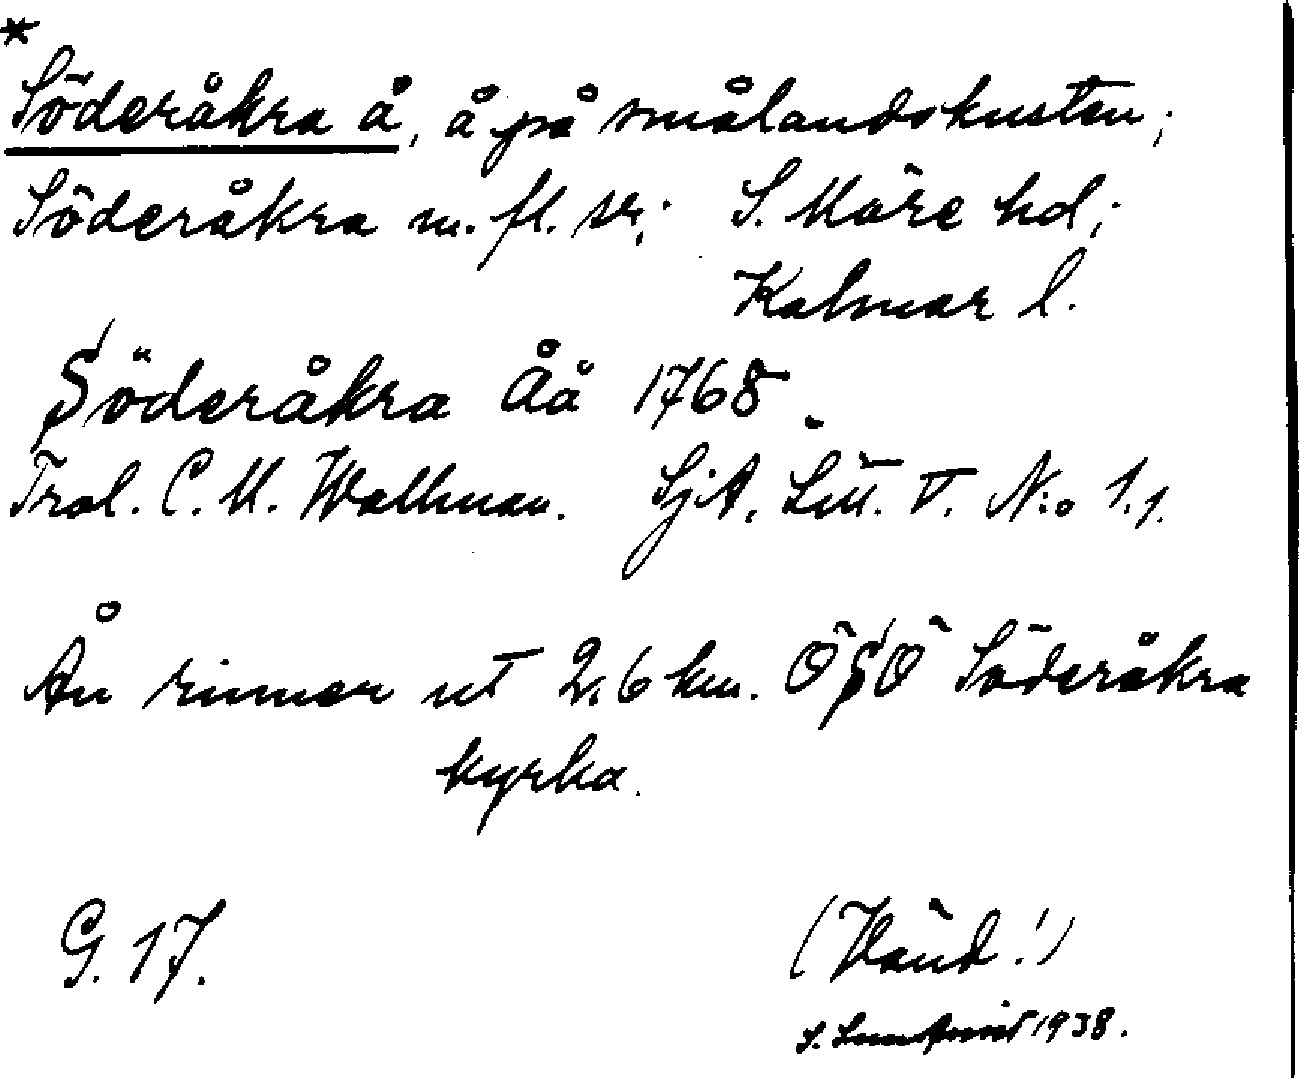 *
Söderåkra å, å på smålandskusten;
Söderåkra m. fl. sr; S. Möre hd;
Kalmar l.
Söderåkra Åå 1768.
Trol. C. M. Wallman. SjA. Litt. T. N:o 1.1.
Ån rinner ut 2,6 km. ÖSÖ Söderåkra
kyrka.
G. 17.
(Vänd!)
S. 1938.